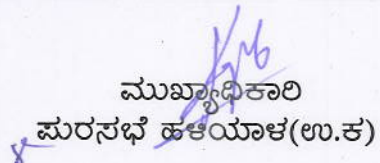 ಮುಖ್ಯಾಧಿಕಾರಿ
ಪುರಸಭೆ ಹಳಿಯಾಳ(ಉ.ಕ)